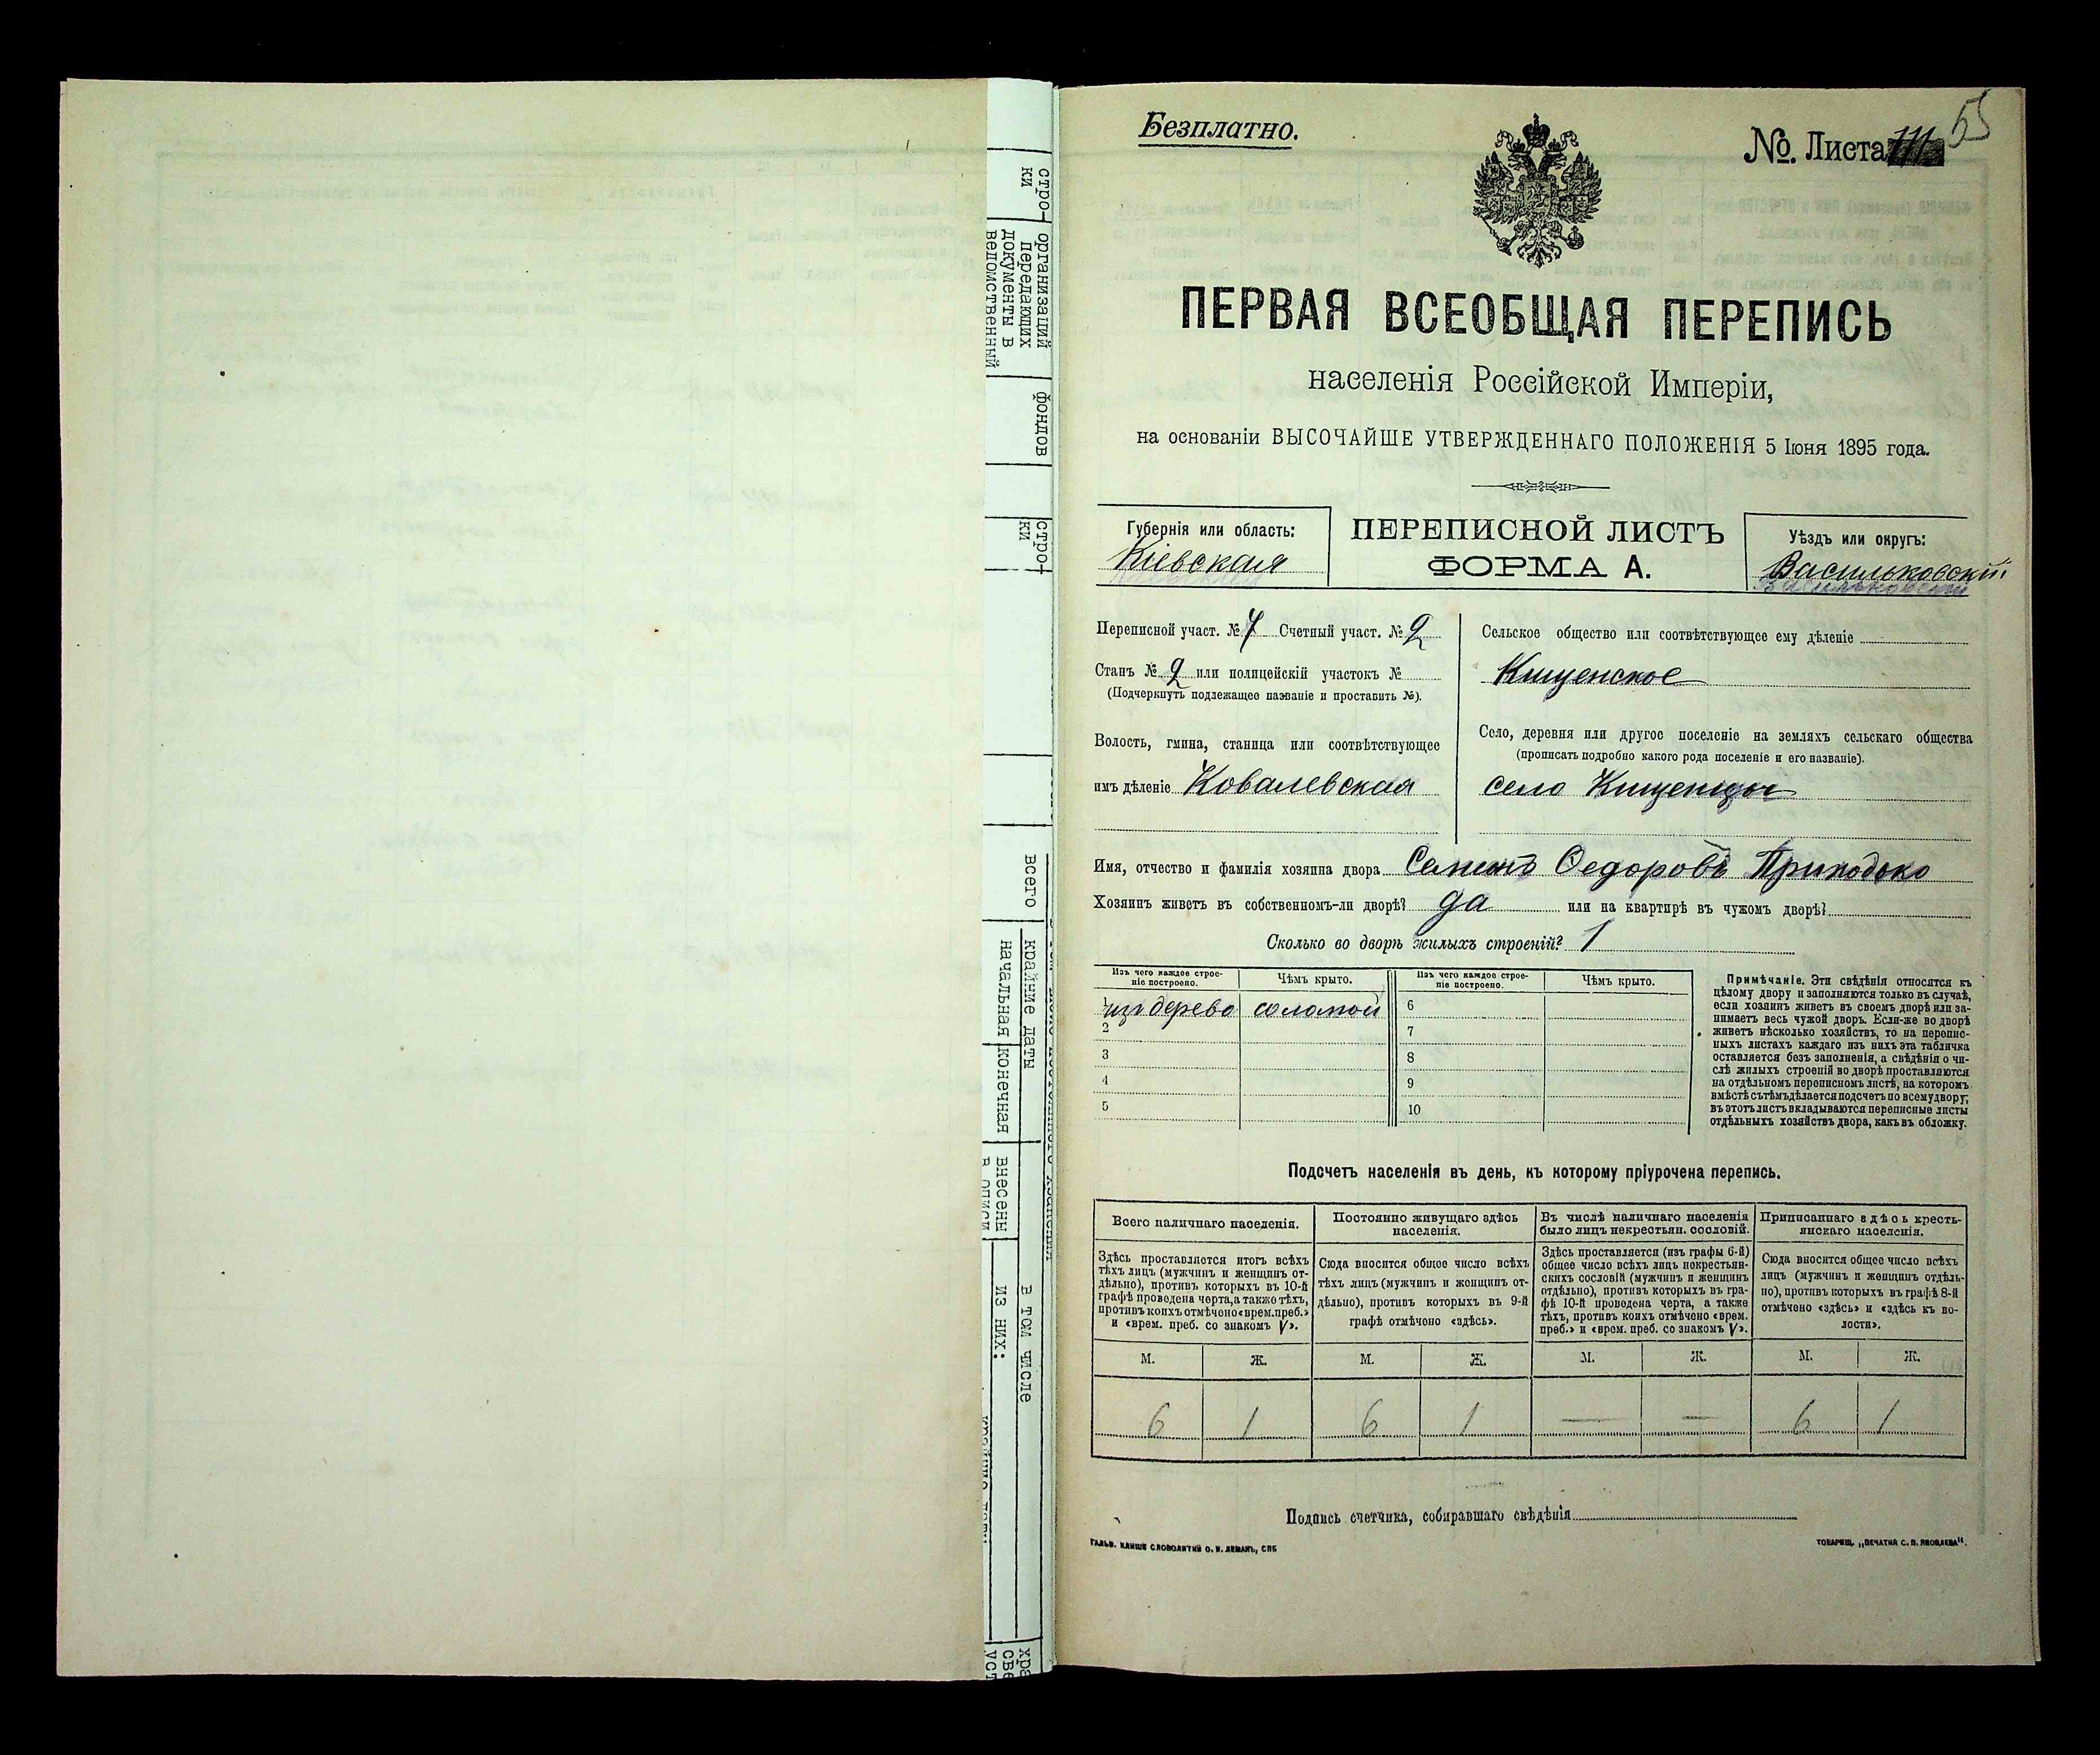 стро-
ки
организаций
передающих
документы в
ведомственный
фондов
стро-
ки
всего
крайние даты
начальная
конечная
внесены
в описи
в том числе
из них:
Безплатно.
55
№. Листа
ПЕРВАЯ ВСЕОБЩАЯ ПЕРЕПИСЬ
населенія Россійской Имперіи,
на основаніи ВЫСОЧАЙШЕ УТВЕРЖДЕННАГО ПОЛОЖЕНІЯ 5 Іюня 1895 года.
Губернія или область:
Кіевская
ПЕРЕПИСНОЙ ЛИСТЪ
ФОРМА А.
Уѣздъ или округъ:
Васильковскій
Переписной участ. № 7 Счетный участ. № 2
Станъ № 2 или полицейскій участокъ №
(Подчеркнуть подлежащее названіе и проставить №).
Волость, гмина, станица или соотвѣтствующее
имъ дѣленіе Ковалевская
Сельское общество или соотвѣтствующее ему дѣленіе
Кищенское
Село, деревня или другое поселеніе на земляхъ сельскаго общества
(прописать подробно какого рода поселеніе и его названіе).
село Кищенцы
Имя, отчество и фамилія хозяина двора Семенъ Федоровъ Приходько
Хозяинъ живетъ въ собственномъ-ли дворѣ? да или на квартирѣ въ чужомъ дворѣ?
Сколько во дворѣ жилыхъ строеній? 1
Изъ чего каждое строе-
ніе построено.
Чѣмъ крыто.
Изъ чего каждое строе-
ніе построено.
Чѣмъ крыто.
1 изъ дерева соломой 6
2 7
3 8
4 9
5 10
Примѣчаніе. Эти свѣдѣнія относятся къ
цѣлому двору и заполняются только въ случаѣ,
если хозяинъ живетъ въ своемъ дворѣ или за-
нимаетъ весь чужой дворъ. Если-же во дворѣ
живетъ нѣсколько хозяйствъ, то на перепис-
ныхъ листахъ каждаго изъ нихъ эта табличка
оставляется безъ заполненія, а свѣдѣнія о чи-
слѣ жилыхъ строеній во дворѣ проставляются
на отдѣльномъ переписномъ листѣ, на которомъ
вмѣстѣ съ тѣмъ дѣлается подсчетъ по всему двору;
въ этотъ листъ вкладываются переписные листы
отдѣльныхъ хозяйствъ двора, какъ въ обложку.
Подсчетъ населенія въ день, къ которому пріурочена перепись.
Всего наличнаго населенія.
Здѣсь проставляется итогъ всѣхъ
тѣхъ лицъ (мужчинъ и женщинъ от-
дѣльно), противъ которыхъ въ 10-й
графѣ проведена черта, а также тѣхъ,
противъ коихъ отмѣчено «врем. преб.»
и «врем. преб. со знакомъ V».
Постоянно живущаго здѣсь
населенія.
Сюда вносится общее число всѣхъ
тѣхъ лицъ (мужчинъ и женщинъ от-
дѣльно), противъ которыхъ въ 9-й
графѣ отмѣчено «здѣсь».
Въ числѣ наличнаго населенія
было лицъ некрестьян. сословій.
Здѣсь проставляется (изъ графы 6-й)
общее число всѣхъ лицъ некрестьян-
скихъ сословій (мужчинъ и женщинъ
отдѣльно), противъ которыхъ въ гра-
фѣ 10-й проведена черта, а также
тѣхъ, противъ коихъ отмѣчено «врем.
преб.» и «врем. преб. со знакомъ V».
Приписаннаго здѣсь кресть-
янскаго населенія.
Сюда вносится общее число всѣхъ
лицъ (мужчинъ и женщинъ отдѣль-
но), противъ которыхъ въ графѣ 8-й
отмѣчено «здѣсь» и «здѣсь къ во-
лости».
М. Ж. М. Ж. М. Ж. М. Ж.
6 1 6 1 — — 6 1
Подпись счетчика, собиравшаго свѣдѣнія
ГАЛЬВ. КЛИШЕ СЛОВОЛИТНИ О. И. ЛЕМАНЪ, СПБ
ТОВАРИЩ. „ПЕЧАТНЯ С. П. ЯКОВЛЕВА“.